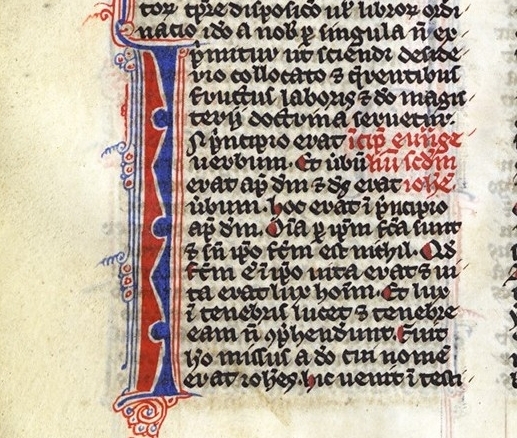 tor tp̄re disposito ul̄ libror ordi
natio ido a nob̄ p singula ñ ex
primitur ut sciendi deside
rio collocato ⁊ q̄rentibus
fructus laboris ⁊ do magis
terij doctrina seruetur.
N pͥncipio erat icip̄ euūge
uerbum. Et ūbū liu̅ scd̄m
erat ap̄ dm̄ ⁊ ds̄ erat iohē.
ūbum. hoc erat ī pͥncipio
ap̄ dm̄. Oīa p ip̄m fc̄a sunt
⁊ sñ ip̄o fc̄m est nichil. Qd̄
fc̄m ē ī ip̄o uita erat ⁊ ui
ta erat lux hoīm. Et lux
ī tenebris lucet ⁊ tenebre
eam ñ 9p̄hendunt. Fuit
ho missus a do cui nomē
erat iohes. hic uenit ī testi